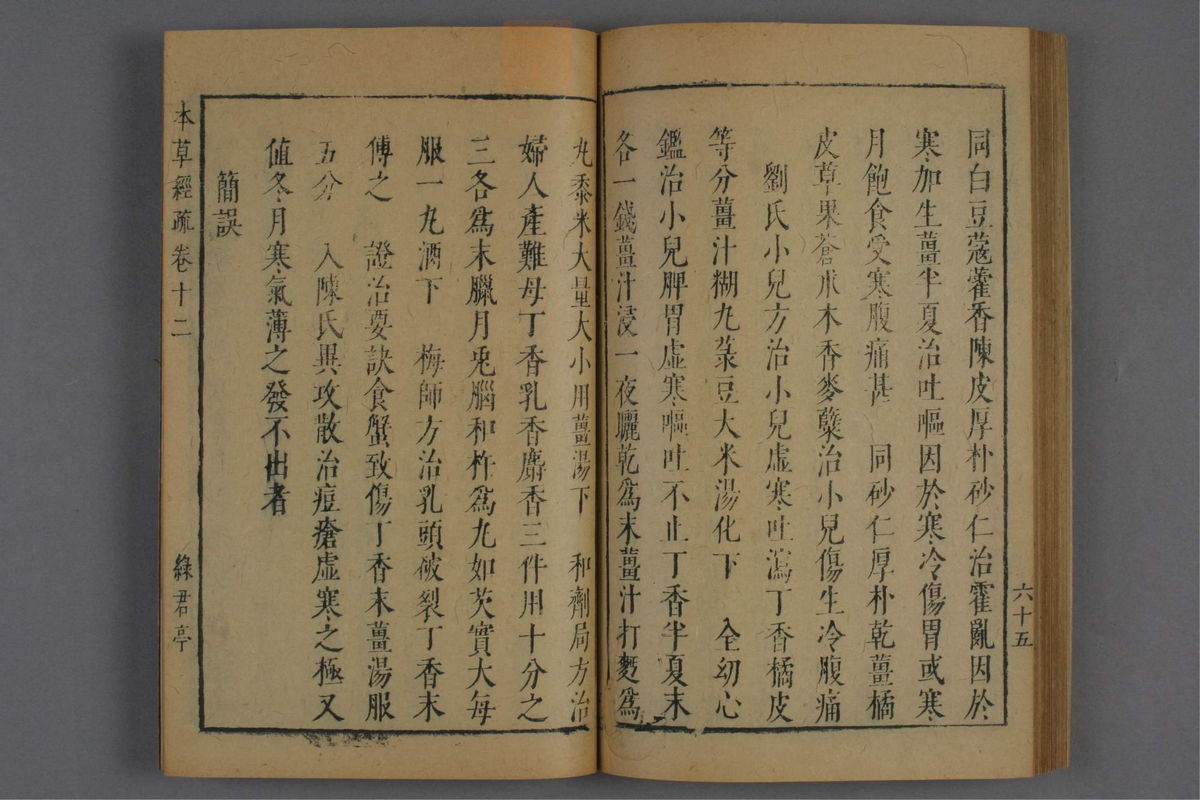 六十五
同白豆蔻藿香陳皮厚朴砂仁治霍亂因於
寒加生薑半夏治吐嘔因於寒冷傷胃或寒
月飽食受寒腹痛甚　同砂仁厚朴乾薑橘
皮草果蒼朮木香麥蘗治小兒傷生冷腹痛
劉氏小兒方治小兒虛寒吐瀉丁香橘皮
等分薑汁糊丸菉豆大米湯化下　全幼心
鑑治小兒脾胃虛寒嘔吐不止丁香半夏末
各一錢薑汁浸一夜曬乾爲末薑汁打麪爲
丸黍米大量大小用薑湯下　和劑局方治
婦人產難母丁香乳香麝香三件用十分之
三各爲末臘月兎腦和杵爲丸如芡實大每
服一丸酒下　梅師方治乳頭破裂丁香末
傅之　證治要訣食蟹致傷丁香末薑湯服
五分　入陳氏異攻散治痘瘡虛寒之極又
値冬月寒氣薄之發不出者
簡誤
本草經疏卷十二
綠君亭